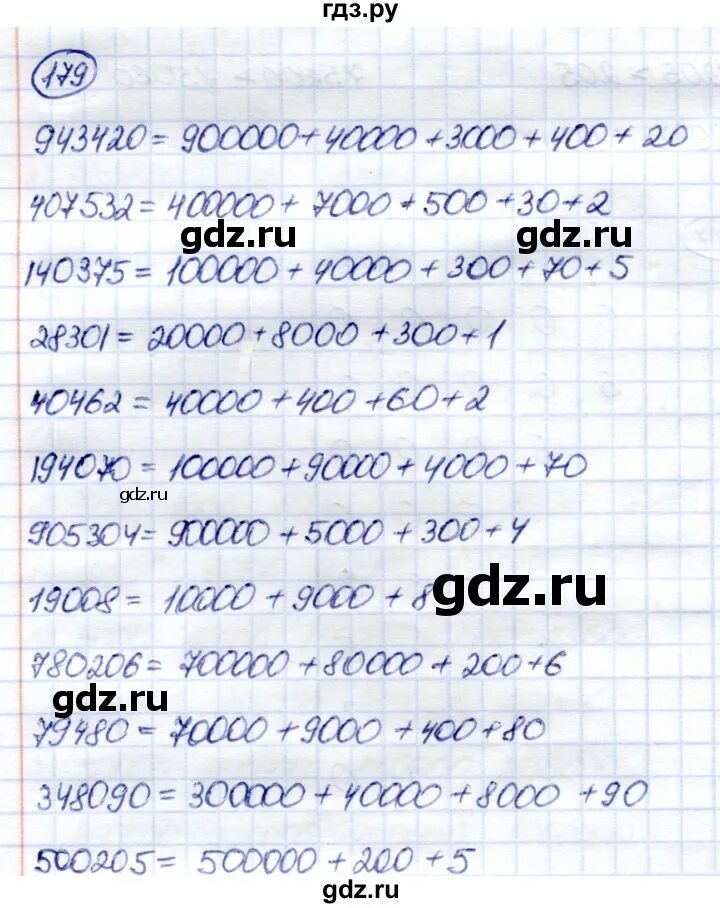 гдз.ру
179
943420 = 900000 + 40000 + 3000 + 400 + 20
407532 = 400000 + 7000 + 500 + 30 + 2
gdz.ru gdz.ru
140375 = 100000 + 40000 + 300 + 70 + 5
28301 = 20000 + 8000 + 300 + 1
40462 = 40000 + 400 + 60 + 2
194070 = 100000 + 90000 + 4000 + 70
gdz.ru
905304 = 900000 + 5000 + 300 + 4
19008 = 10000 + 9000 + 8
gdz.ru
780206 = 700000 + 80000 + 200 + 6
gdz.ru
79480 = 70000 + 9000 + 400 + 80
348090 = 300000 + 40000 + 8000 + 90
500205 = 500000 + 200 + 5
gdz.ru